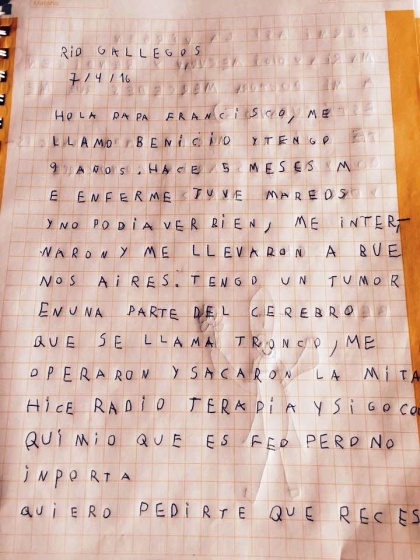 RIO GALLEGOS
7/4/16
HOLA PAPA FRANCISCO, ME
LLAMO BENICIO YTENGO
9 AÑOS. HACE 5 MESES M
E ENFERME TUVE MAREOS
YNO PODIA VER BIEN, ME INTER,
NARON Y ME LLEVARON A BUE
NOS AIRES. TENGO UN TUMOR
ENUNA PARTE DEL CEREBRO
QUE SE LLAMA TRONCO, ME
OPERARON YSACARON LA MITA
HICE RADIO TERAPIA YSIGOCO
QUIMIO QUE ES FEO PERO NO
INPORTA
QUIERO PEDIRTE QUE RECES